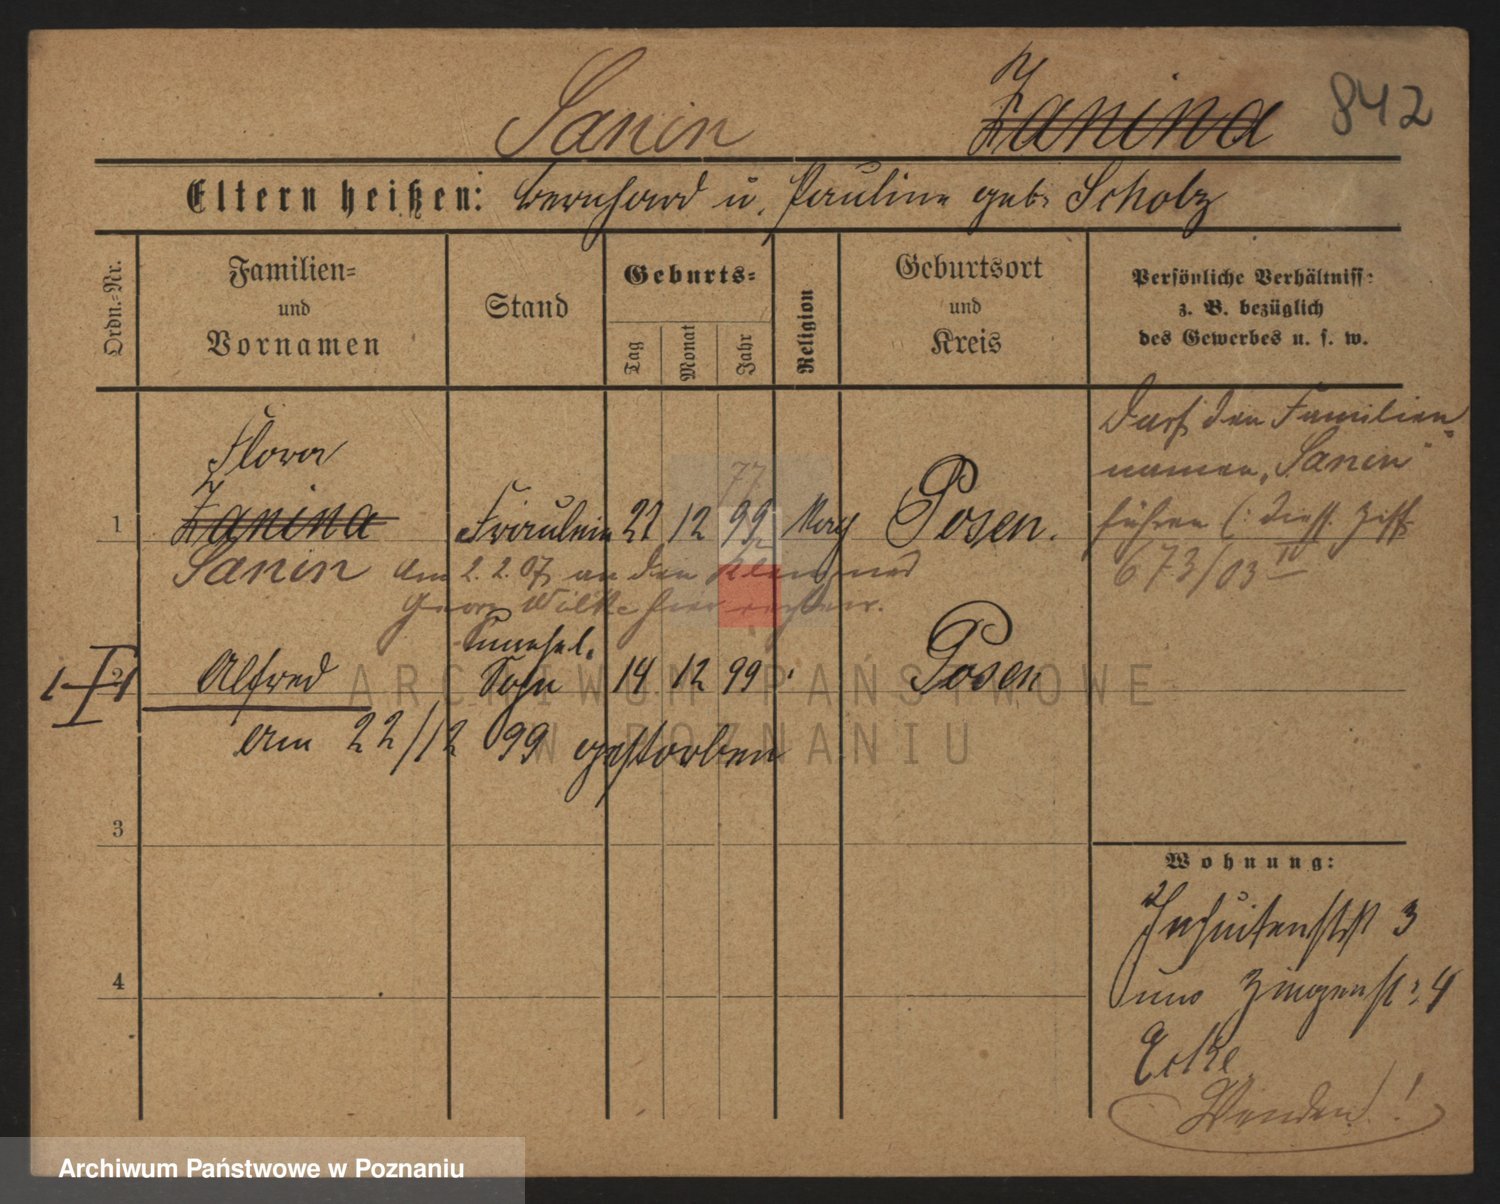 Sanin Zanina 842
Eltern heißen: Bernhard u. Pauline geb. Scholz
Ordn.-Nr.
Familien-
und
Vornamen
Stand
Geburts-
Tag
Monat
Jahr
Religion
Geburtsort
und
Kreis
Persönliche Verhältniss:
z. B. bezüglich
des Gewerbes u. s. w.
Darf den Familien
namen „Sanin"
führen (:
673/03 IV
Flora
77
1 Zanina Fräulein 21 12 99 Posen.
Sanin Am 2. 2. 07 an den Klempner
Georg Wilke hier
2 Alfred Sohn 14 12 99 Posen
am 22/12 99 gestorben
3
4
Wohnung:
Jesuitenstr 3
und Ziegenstr. 4
Ecke
Wenden!
ARCHIWUM PAŃSTWOWE
W POZNANIU
Archiwum Państwowe w Poznaniu